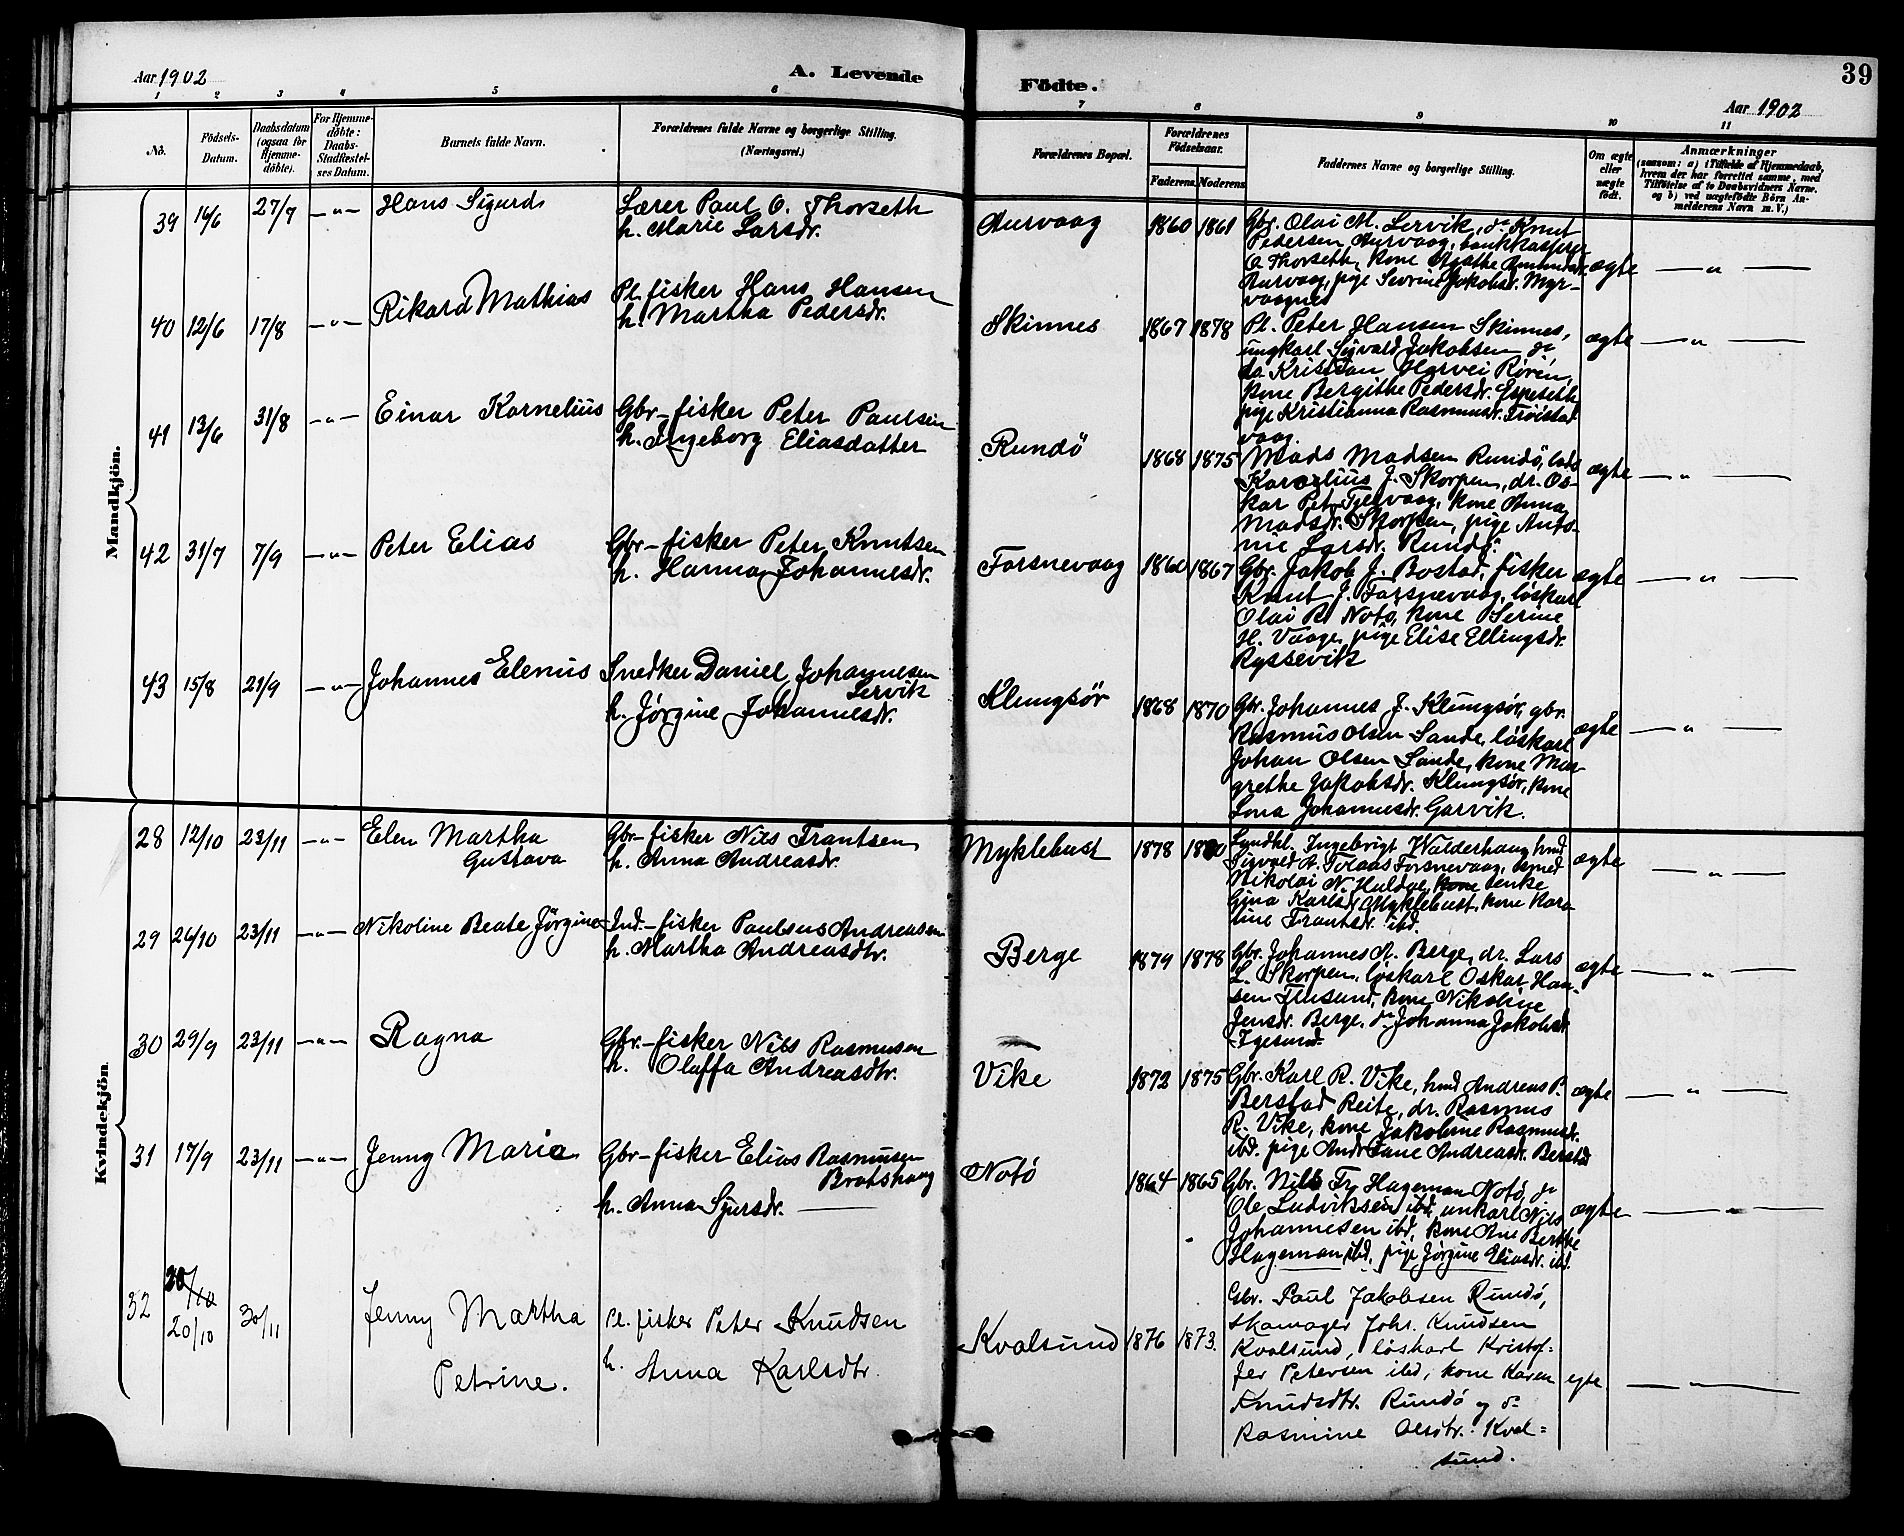 Aar 1902
A. Levende
Födte.
39
Aar 1902
1 2 3 4 5 6 7 8 9 10 11
No.
Födsels-
Datum.
Daabsdatum
(ogsaa for
Hjemme-
döbte).
For Hjemme-
döbte:
Daabs-
Stadfæstel-
ses Datum.
Barnets fulde Navn.
Forældrenes fulde Navne og borgerlige Stilling.
(Næringsvei.)
Forældrenes Bopæl.
Forældrenes
Födselsaar.
Faderens.
Moderens.
Faddernes Navne og borgerlige Stilling.
Om ægte
eller
uægte
födt.
Anmærkninger
(saasom: a) i Tilfælde af Hjemmedaab,
hvem der har forrettet samme, med
Tilföielse af to Daabsvidners Navne.
og b) ved uægtefödte Börn An-
melderens Navn m. V.)
Mandkjön.
39 14/6 27/7 —"— Hans Sigurd
Lærer Paul O. Thorseth
h. Marie Larsdr.
Aurvaag 1860 1861
Gbr. Olai M. Lervik, do Knut
Pedersen Aurvaag, bankkasserer
O Thorseth, kone Agathe
Aurvaag, pige Sevrine Jakobsd. Myr-
vaagnes
ægte —"—
40 12/6 17/8 —"— Rikard Mathias
Pl. fisker Hans Hansen
h. Martha Pedersdr.
Skinnes 1867 1878
Pl. Peter Hansen Skinnes,
ungkarl Sigvald Jakobsen do
do Kristian Olarvei Røren,
kone Bergithe Pedersdr. Espeseth
pige Kristianna Rasmusdr. Trøistad-
vaag.
ægte —"—
41 13/6 31/8 —"— Einar Kornelius
Gbr-fisker Peter Paulsen
h. Ingeborg Eliasdatter
Rundö 1868 1875
Mads Madsen Rundö,
Kornelius J. Skorpen, dr. Os-
kar Pet. Tjervaag, kone Anna
Madsdr. Skorpen, pige Anto-
nie Larsdr. Rundö.
ægte —"—
42 31/7 7/9 —"— Peter Elias
Gbr-fisker Peter Knutsen
h. Hanna Johannesdr.
Torsnevaag 1860 1867
Gbr. Jakob J. Bostad, fisker
Knut J. Torsnevaag, løskarl
Olai R. Notø, kone Serine
H. Vaage, pige Elise Ellingsdr.
Ryssevik
ægte —"—
43 15/8 21/9 —"— Johannes Elenius
Snedker Daniel Johannesen
Lervik
h. Jørgine Johannesdr.
Klungsör 1868 1870
Gbr. Johannes J. Klungsör, gbr.
Rasmus Olsen Sande, løskarl
Johan Olsen Sande, kone Mar-
grethe Jakobsdr. Klungsör, kone
Lona Johannesdr. Garvik.
ægte —"—
Kvindekjön.
28 12/10 23/11 —"— Elen Martha
Gustava
Gbr-fisker Nils Frantsen
h. Anna Andreasdr.
Myklebust 1878 1880
Ingebrigt Walderhaug hmd
Sigvald A. Tolaas Torsnevaag, smed
Nikolai N. Huldal, kone enke
Gina Karlsdr. Myklebust, kone Kara-
line Frantsdr. ibd.
ægte —"—
29 26/10 23/11 —"— Nikoline Beate Jörgine
Ind.-fisker Paulsus Andreasen
h. Martha Andreasdtr.
Berge 1879 1878
Gbr. Johannes A. Berge, dr. Lars
L. Skorpen, løskarl Oskar Han-
sen Flusund, kone Nikoline
Jensdr. Berge, do Johanna Jakobsdr.
Igesund.
ægte —"—
30 29/9 23/11 —"— Ragna
Gbr.-fisker Nils Rasmusen
h. Oluffa Andreasdtr.
Vike 1872 1875
Gbr. Karl R. Vike, hmd Andreas P.
Berstad Reite, dr. Rasmus
R. Vike, kone Jakobine Rasmusdr.
ibd. pige Andr Jane Andreasdr. Berstad
ægte —"—
31 17/9 23/11 —"— Jenny Marie
Gbr-fisker Elias Rasmusen
Bratshaug
h. Anna Sjursdr. —
Notø 1864 1865
Gbr. Nils Fr. Hageman Notø, do
Ole Ludviksen ibd, unkarl Nils
Johannesen ibd, kone Ane Berthe
Hageman ibd, pige Jørgine Eliasdr. ibd.
ægte —"—
32 20/10 20/10 30/11
Jenny Martha
Petrine.
Pl. fisker Peter Knudsen
h. Anna Karlsdtr.
Kvalsund 1876 1873.
Gbr. Paul Jakobsen Rundø,
skomager Johs. Knudsen
Kvalsund, løskarl Kristof-
fer Petersen ibd, kone Karen
Knudsdtr. Rundø og do
Rasmine Olsdtr. Kval=
sund.
egte —"—